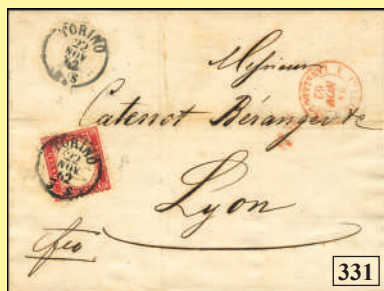 TORINO
22
NOV
62
7 S
Messieurs
Catenot Béranger &
TORINO
22
NOV
62
7 S
Lyon
fco
331